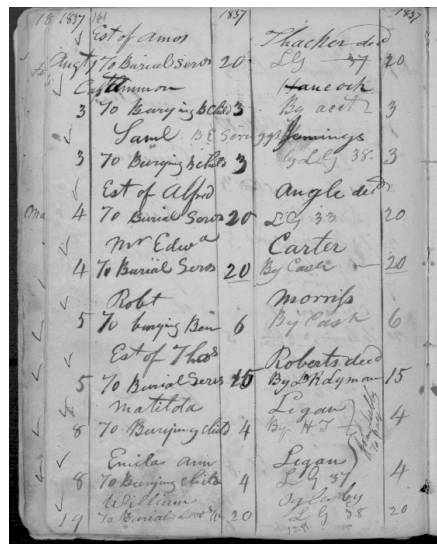 18 1837 161 1837 1837
Est of Amos Thacker decd
Augt 1 To Burial Servs 20 LG 37 20
Hancock
3 To Burying B child 3 By acct 3
Saml Jennings
3 To Burying B child 3 By LG 38 3
Est of Alfred Angle decd
4 To Burial Servs 20 LG 33 20
Mr Edwd Carter
4 To Burial Servs 20 By Cash 20
Robt Morriss
5 To burying Ben 6 By Cash 6
Est of Thos Roberts decd
5 To Burial Servs 15 By 15
Matilda Ligan
8 To Burying child 4 By HT 4
Emila Ann Ligan
8 To Burying child 4 LG 37 4
William Oglesby
19 To Burial 20 LG 38 20
128